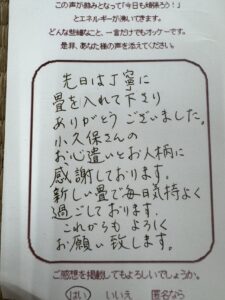 この声が励みとなって「今日も頑張ろう！」
とエネルギーが湧いてきます。
どんな些細なこと、一言だけでもオッケーです。
是非、あなた様の声を添えてください。
先日は丁寧に
畳を入れて下さり
ありがとうございました。
小久保さんの
お心遣いとお人柄に
感謝しております。
新しい畳で毎日気持よく
過ごしております。
これからも よろしく
お願い致します。
ご感想を掲載してもよろしいでしょうか。
はい いいえ 匿名なら